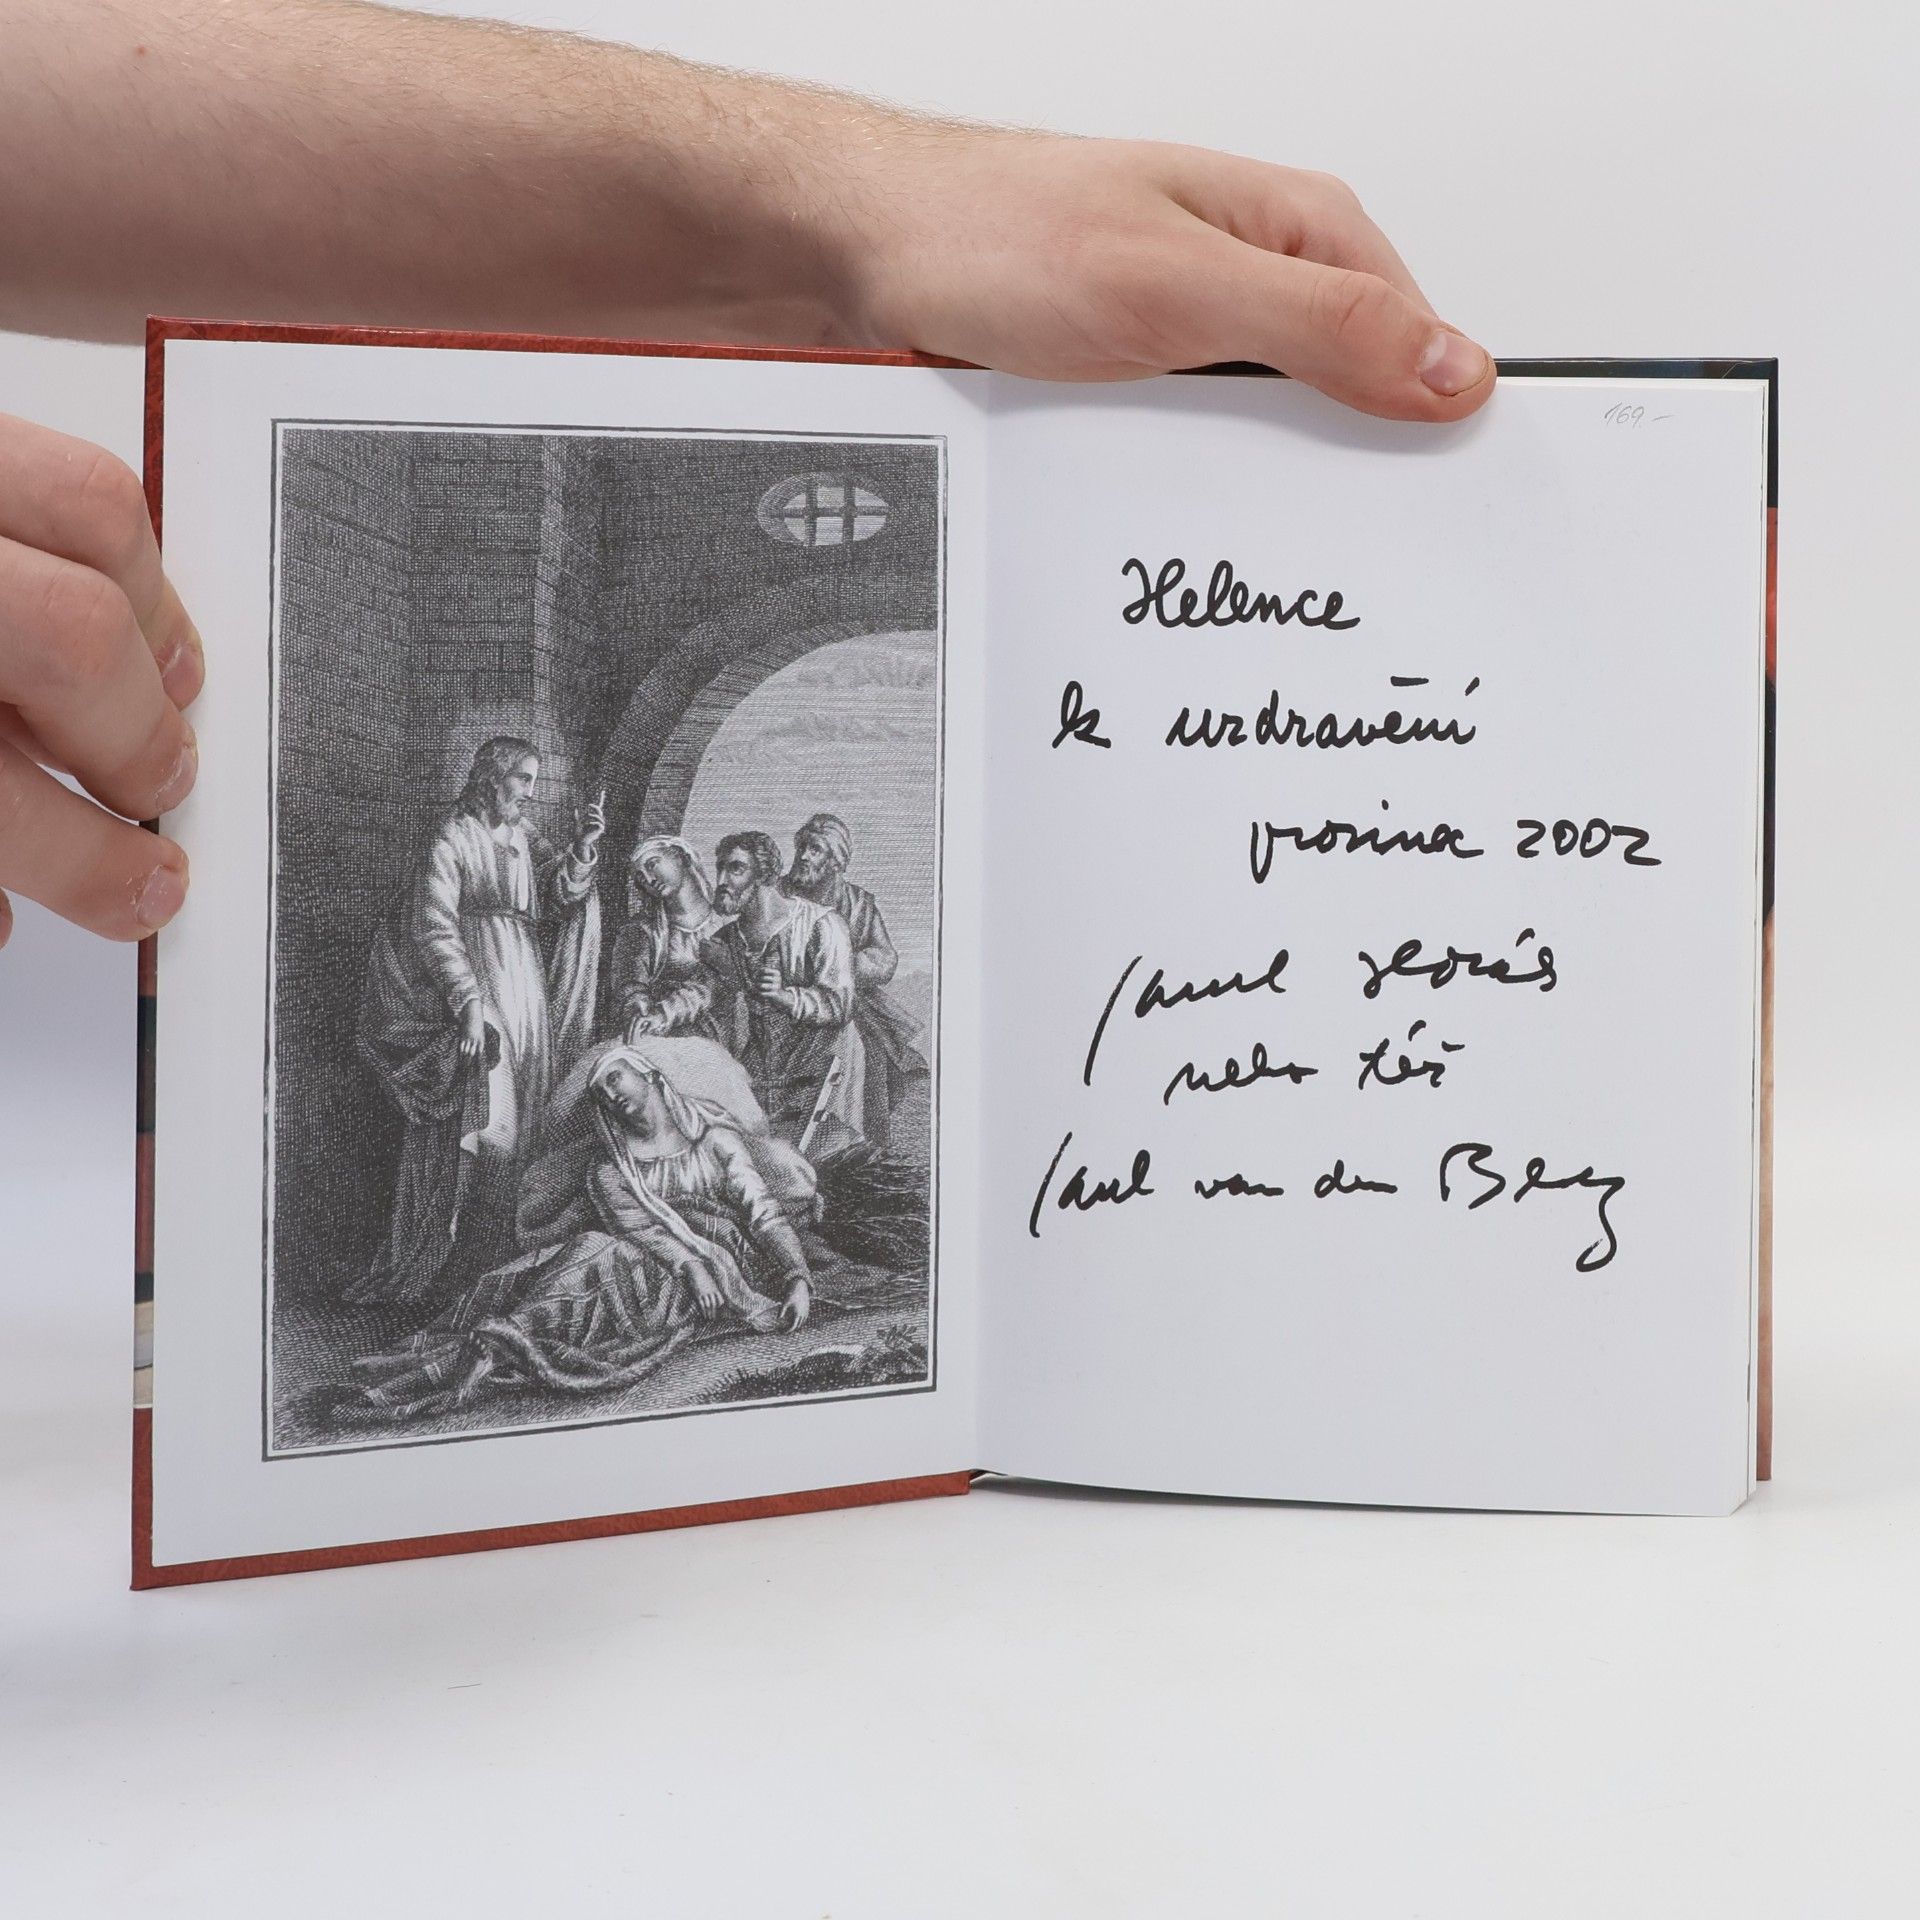 169.-
Helence
k uzdravění
prosinec 2002
Pavel Horák
nebo též
Paul van den Berg